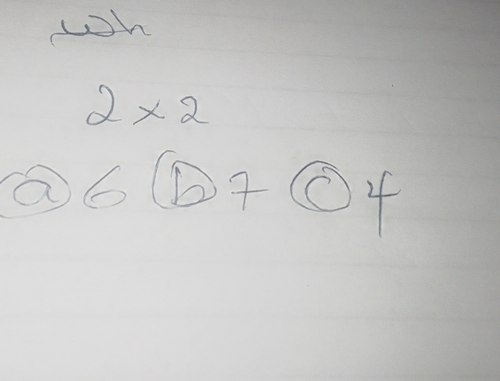 Wh
2 x 2
(a) 6 (b) 7 (c) 4